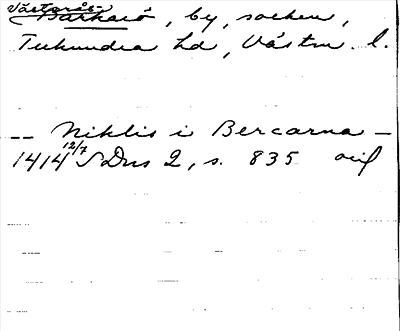 Västerås-
Barkarö, by, socken,
Tuhundra hd, Västm. l.
-- Niklis i Bercarna –
1414 12/7 SDns 2, s. 835 orig